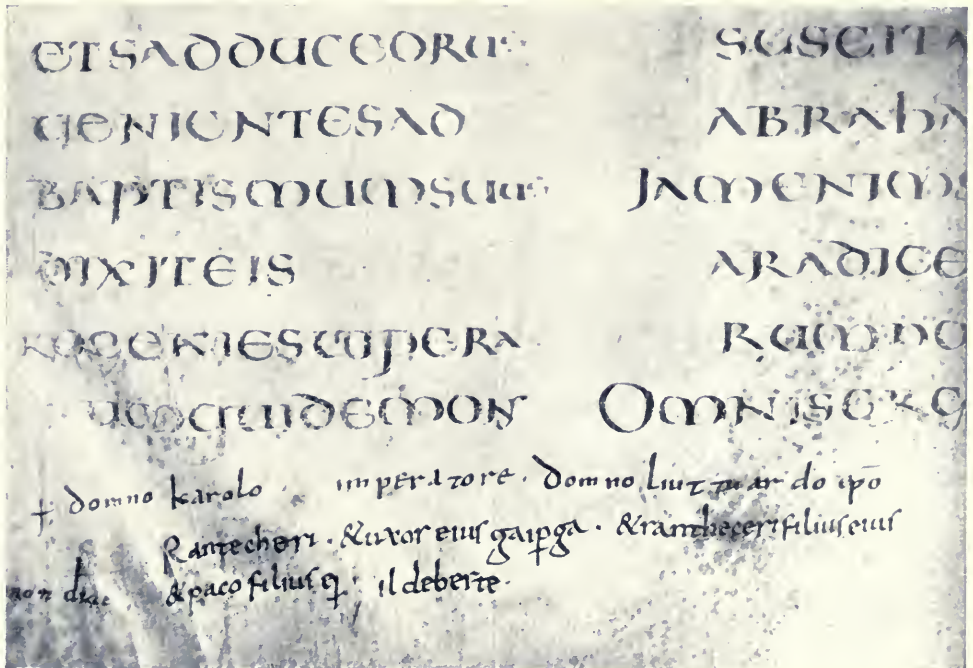 ETSADDUCEORU
UENIENTESAD
BAPTISMUMSUU
DIXITEIS
PROGENIESUIPERA
DEMON
SUSCITA
ABRAHA
IAMENIMS
ARADICE
OMNISERG
+ domno karolo imperatore · domno liutuardo ipō
Rantecheri · &uxor eius gaipga · &rantheceri filius eius
non dige &paco filius eꝗ ildeberte ·